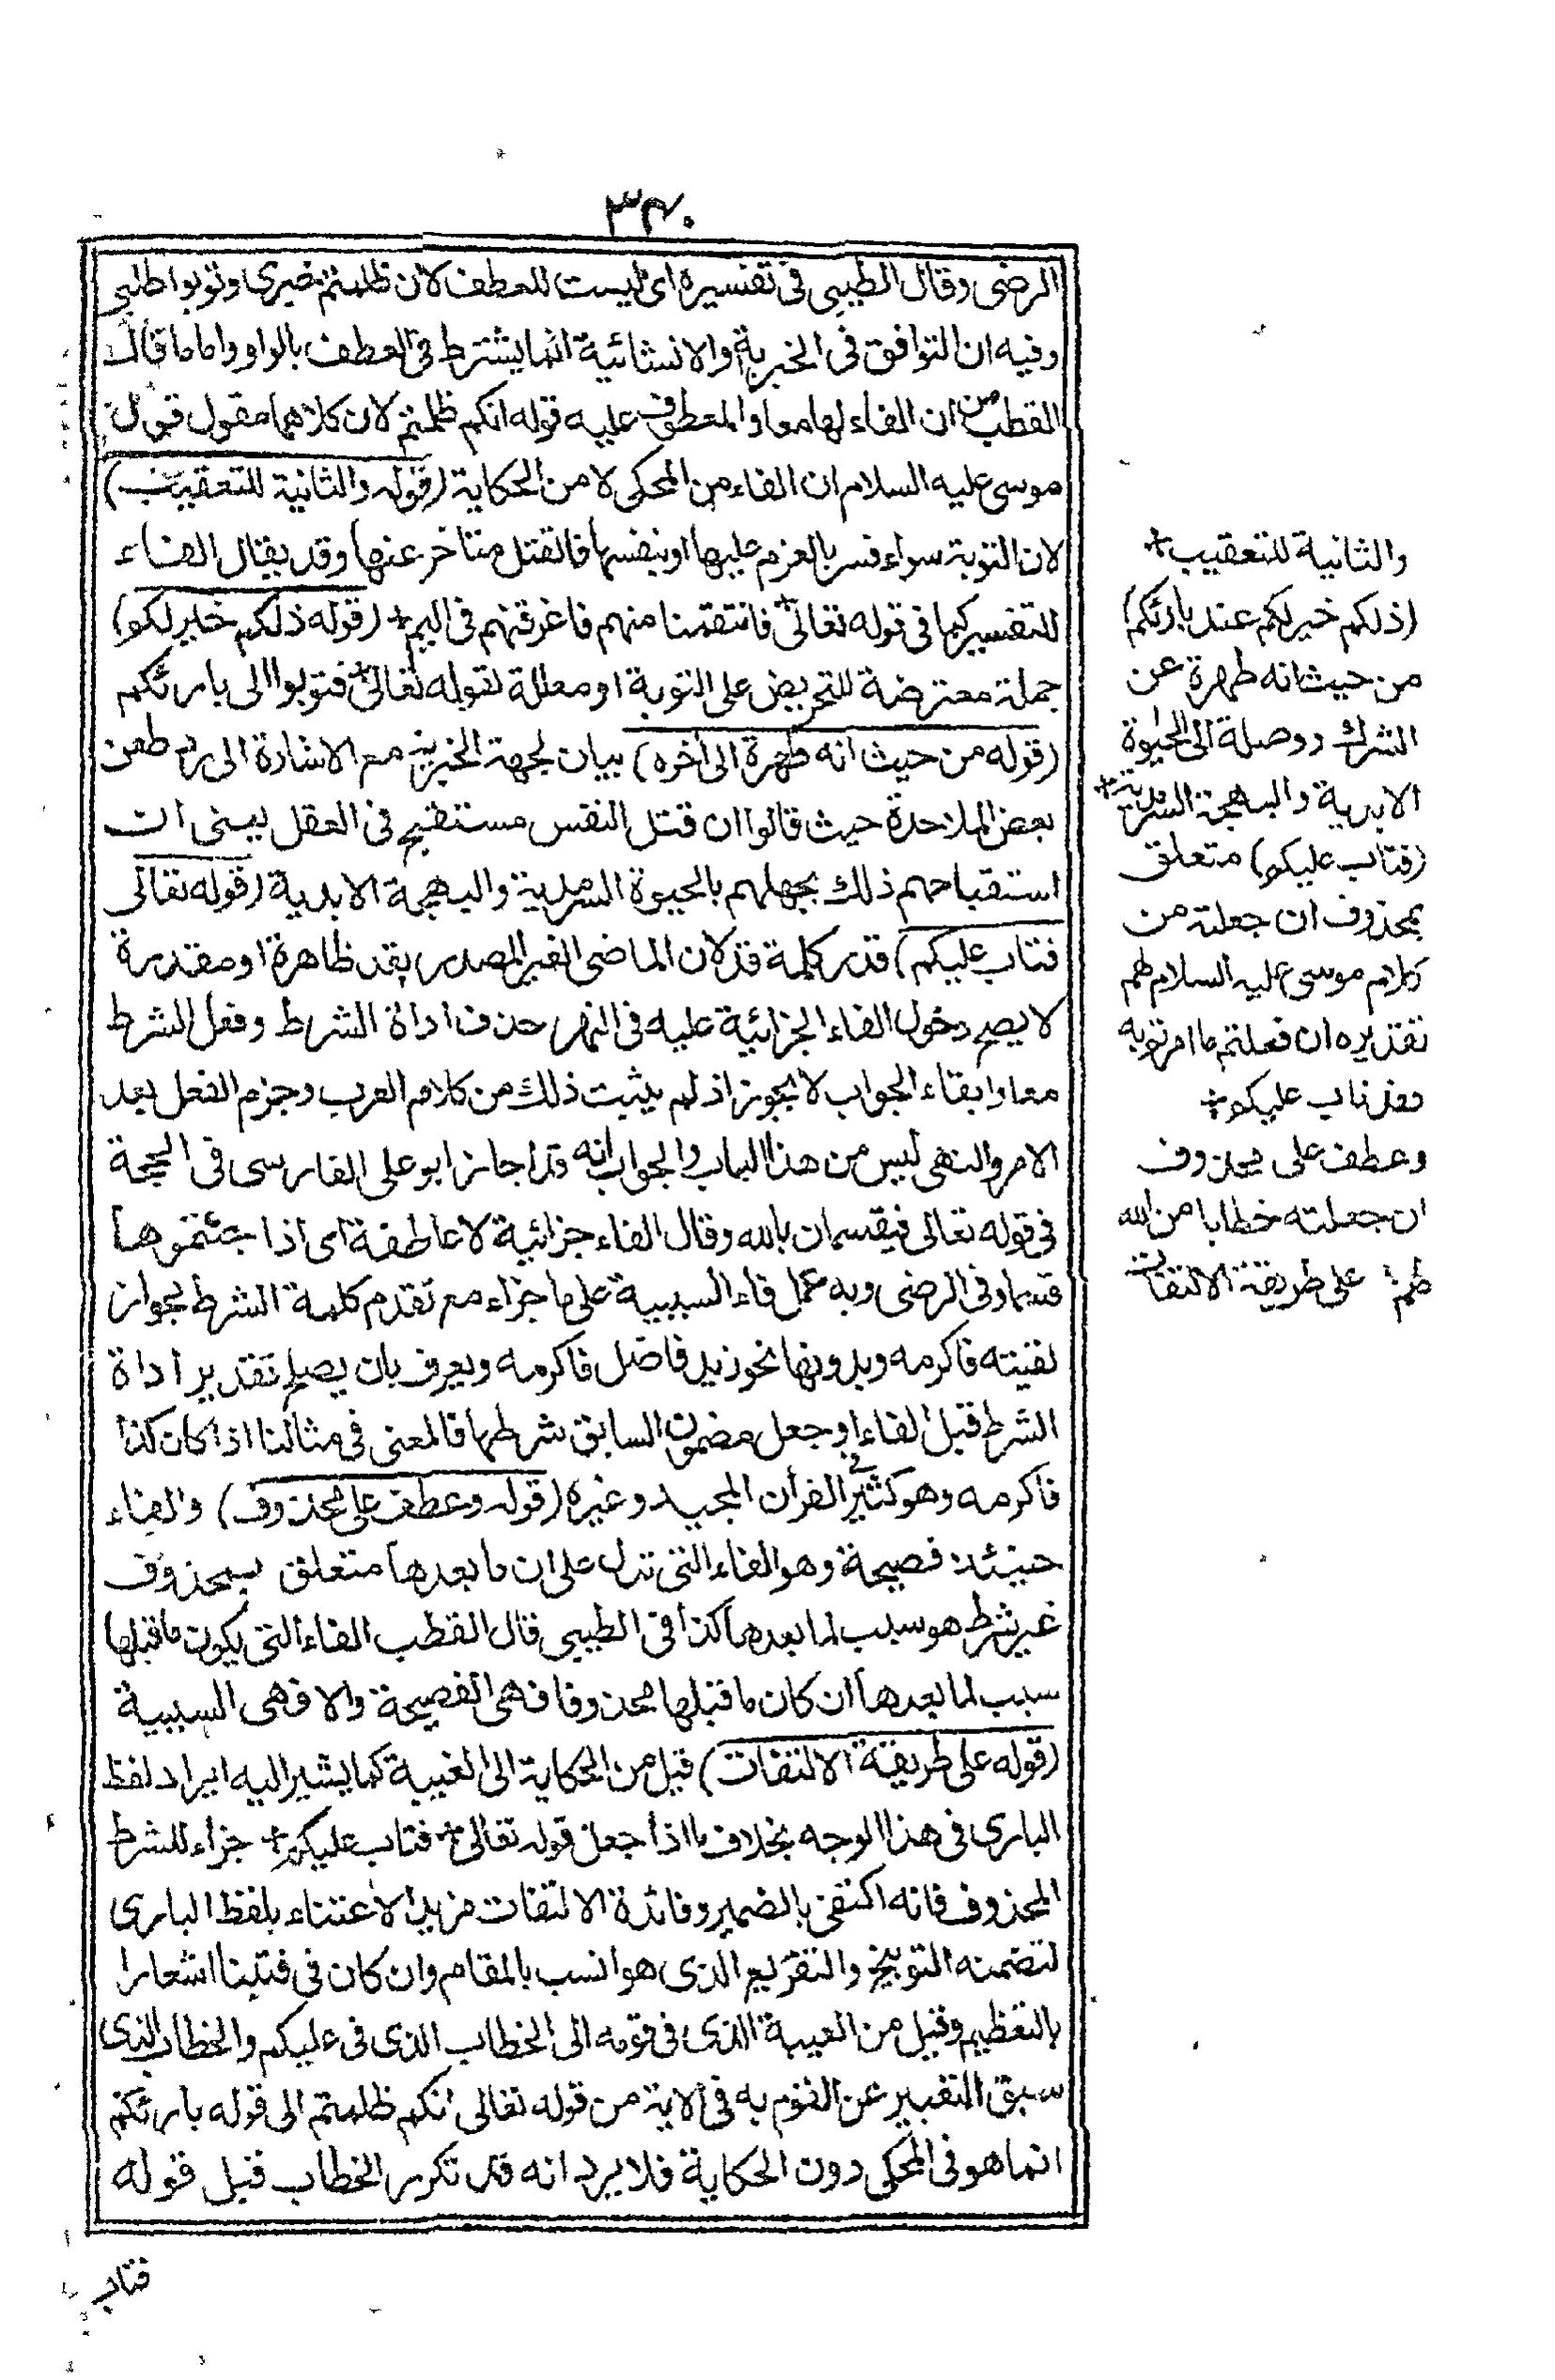 ٣٤٠
الرضى وقال الطيبى فى تفسيره اى ليست للعطف لان ظلمتم خبرى وتوبوا طلبى
وفيه ان التوافق فى الخبرية والانشائية انما يشترط فى العطف بالواو واما ما قال
القطب من ان الفاء لها معا والمعطوف عليه قوله انكم ظلمتم لان كلاهما مقول قول
موسى عليه السلام ان الفاء من المحكى لا من الحكاية (قوله والثانية للتعقيب)
لان التوبة سواء فسر بالعزم عليها او بنفسها فالقتل متاخر عنها وقد يقال الفاء
للتفسير كما فى قوله تعالى+ فانتقمنا منهم فاغرقنهم فى اليم+ (قوله ذلكم خير لكم)
جملة معترضة للتحريض على التوبة او معللة لقوله تعالى+ فتوبوا الى بارئكم
(قوله من حيث انه طهرة الى أخره) بيان لجهة الخبرية مع الاشارة الى رد طعن
بعض الملاحدة حيث قالوا ان قتل النفس مستقبح فى العقل يعنى ان
استقباحهم ذلك بجهلهم بالحيوة السرمدية والبهجة الابدية (قوله تعالى
فتاب عليكم) قدر كلمة قد لان الماضى الغير المصدر بقد ظاهرة او مقدرة
لا يصح دخول الفاء الجزائية عليه فى النهر حذف أداة الشرط وفعل الشرط
معا وابقاء الجواب لا يجوز اذ لم يثبت ذلك من كلام العرب وجزم الفعل بعد
الامر والنهى ليس من هذا الباب والجواب انه قد اجاز ابو على الفارسى فى الحجة
فى قوله تعالى فيقسمان بالله وقال الفاء جزائية لا عاطفة اى اذا حبستموهما
قسما وفى الرضى وبه عمل فاء السببية على ما جزاء مع تقدم كلمة الشرط لجواز
لقيته فاكرمه وبدونها نحو زيد فاضل فاكرمه ويعرف بان يصلح تقدير أداة
الشرط قبل الفاء وجعل مضمون السابق شرطها فالمعنى فى مثالنا اذا كان كذا
فاكرمه وهو كثير فى القرأن المجيد وغيره (قوله وعطف على محذوف) والفاء
حينئذ فصيحة وهو الفاء التى تدل على ان ما بعدها متعلق بمحذوف
غير شرط هو سبب لما بعدها كذا فى الطيبى قال القطب الفاء التى يكون ما قبلها
سبب لما بعدها ان كان ما قبلها محذوفا فهى الفصيحة والا فهى السببية
(قوله على طريقة الالتفات) قيل من الحكاية الى الغيبة كما يشير اليه ايراد لفظ
البارى فى هذا الوجه بخلاف ما اذا جعل قوله تعالى+ فتاب عليكم+ جزاء للشرط
المحذوف فانه اكتفى بالضمير وفائدة الالتفات مزيد الاعتناء بلفظ البارى
لتضمنه التوبيخ والتقريع الذى هو انسب بالمقام وان كان فى فتبنا اشعارا
بالتعظيم وقيل من الغيبة الذى فى قومه الى الخطاب الذى فى عليكم والخطاب الذى
سبق التعبير عن القوم به فى الاية من قوله تعالى انكم ظلمتم الى قوله بارئكم
انما هو فى المحكى دون الحكاية فلا يرد انه قد تكرر الخطاب قبل قوله
فتاب
والثانية للتعقيب+
(ذلكم خير لكم عند بارئكم)
من حيث انه طهرة عن
الشرك ووصلة الى الحيوة
الابدية والبهجة السرمدية+
(فتاب عليكم) متعلق
بمحذوف ان جعلته من
كلام موسى عليه السلام لهم
تقديره ان فعلتم ما امرتم به
فقد تاب عليكم+
وعطف على محذوف
ان جعلته خطابا من الله
لهم على طريقة الالتفات